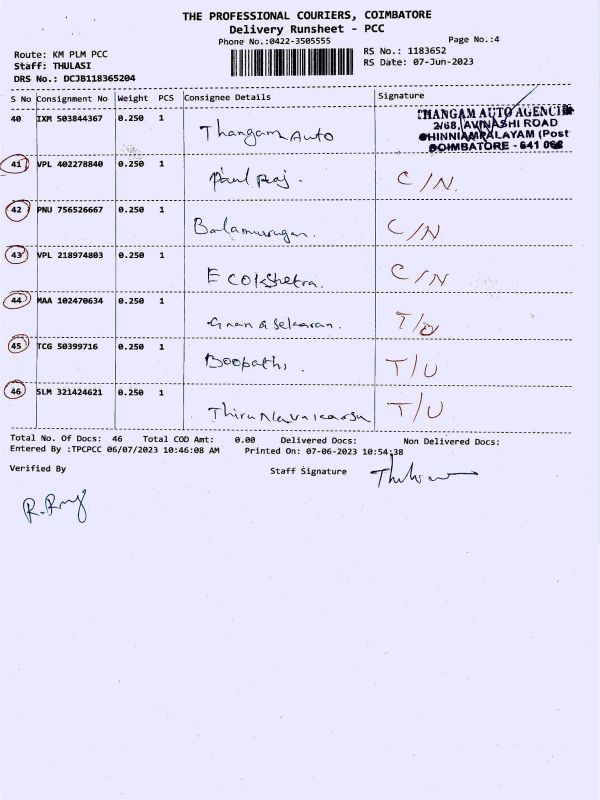 THE PROFESSIONAL COURIERS, COIMBATORE
Delivery Runsheet - PCC
Phone No.:0422-3505555 Page No.:4
Route: KM PLM PCC RS No.: 1183652
Staff: THULASI RS Date: 07-Jun-2023
DRS No.: DCJB118365204
S No Consignment No Weight PCS Consignee Details Signature
40 IXM 503844367 0.250 1 Thangam Auto
THANGAM AUTO AGENCIES
2/68, AVINASHI ROAD
CHINNIAMPALAYAM (Post
COIMBATORE - 641 062
41 VPL 402278840 0.250 1 Paul Raj. C/N.
42 PNU 756526667 0.250 1 Balamurugan. C/N
43 VPL 218974803 0.250 1 Ecokshetra. C/N
44 MAA 102470634 0.250 1 Gnanasekaran. T/U
45 TCG 50399716 0.250 1 Boopathi. T/U
46 SLM 321424621 0.250 1 T/U
Total No. Of Docs: 46 Total COD Amt: 0.00 Delivered Docs: Non Delivered Docs:
Entered By :TPCPCC 06/07/2023 10:46:08 AM Printed On: 07-06-2023 10:54:38
Verified By Staff Signature